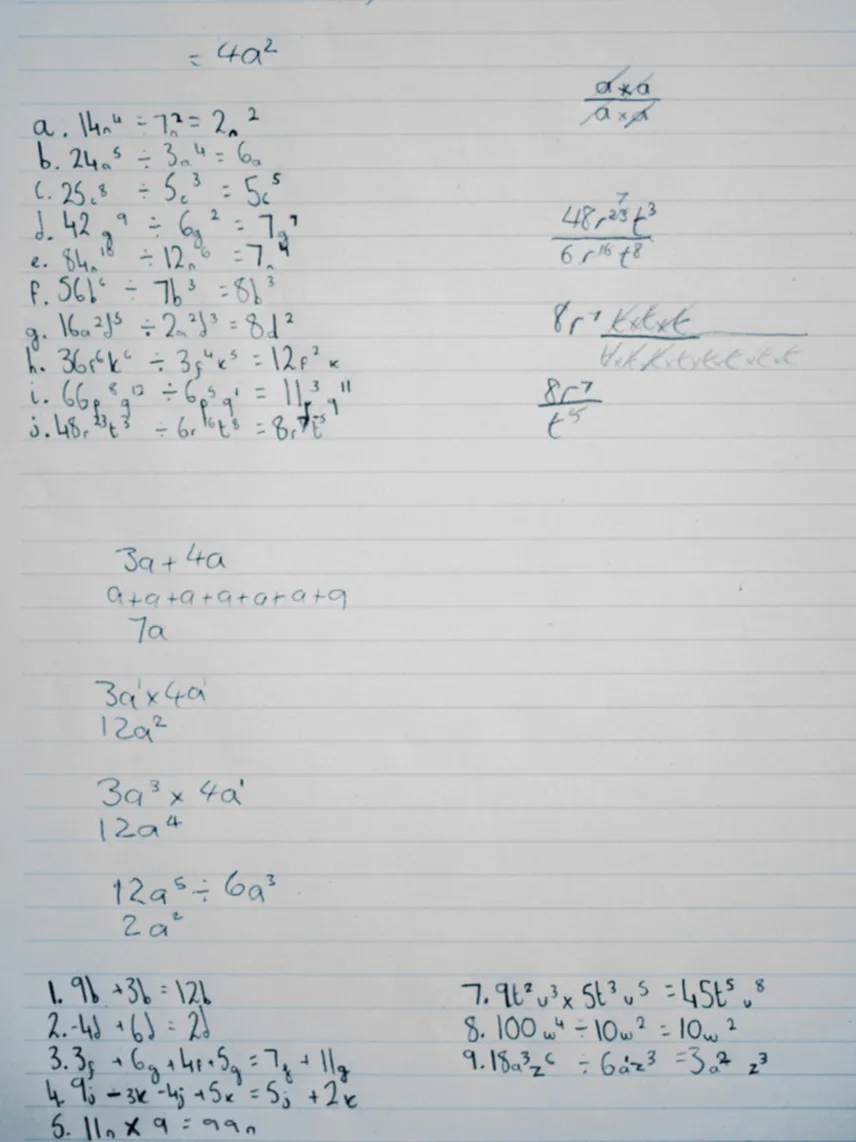 = 4a²
a. 14n⁴ ÷ 7n² = 2n²
b. 24a⁵ ÷ 3a⁴ = 6a
c. 25c⁸ ÷ 5c³ = 5c⁵
d. 42g⁹ ÷ 6g² = 7g⁷
e. 84n¹⁰ ÷ 12n⁶ = 7n⁴
f. 56b⁶ ÷ 7b³ = 8b³
g. 16a²d⁵ ÷ 2a²d³ = 8d²
h. 36f⁶k⁶ ÷ 3f⁴k⁵ = 12f²k
i. 66p⁸q¹² ÷ 6p⁵q¹ = 11p³q¹¹
j. 48r²³t³ ÷ 6r¹⁶t⁸ = 8r⁷t⁻⁵
a x a
a x a
7
48r²³t³
6r¹⁶t⁸
8r⁷ txtxt
txtxtxtxtxtxtxt
8r⁷
t⁵
3a + 4a
a+a+a+a+a+a+a
7a
3a¹ x 4a¹
12a²
3a³ x 4a¹
12a⁴
12a⁵ ÷ 6a³
2a²
1. 9b + 3b = 12b
2. -4d + 6d = 2d
3. 3f + 6g + 4f + 5g = 7f + 11g
4. 9j - 3k - 4j + 5k = 5j + 2k
5. 11n x 9 = 99n
7. 9t²v³ x 5t³v⁵ = 45t⁵v⁸
8. 100w⁴ ÷ 10w² = 10w²
9. 18a³z⁶ ÷ 6a¹z³ = 3a²z³